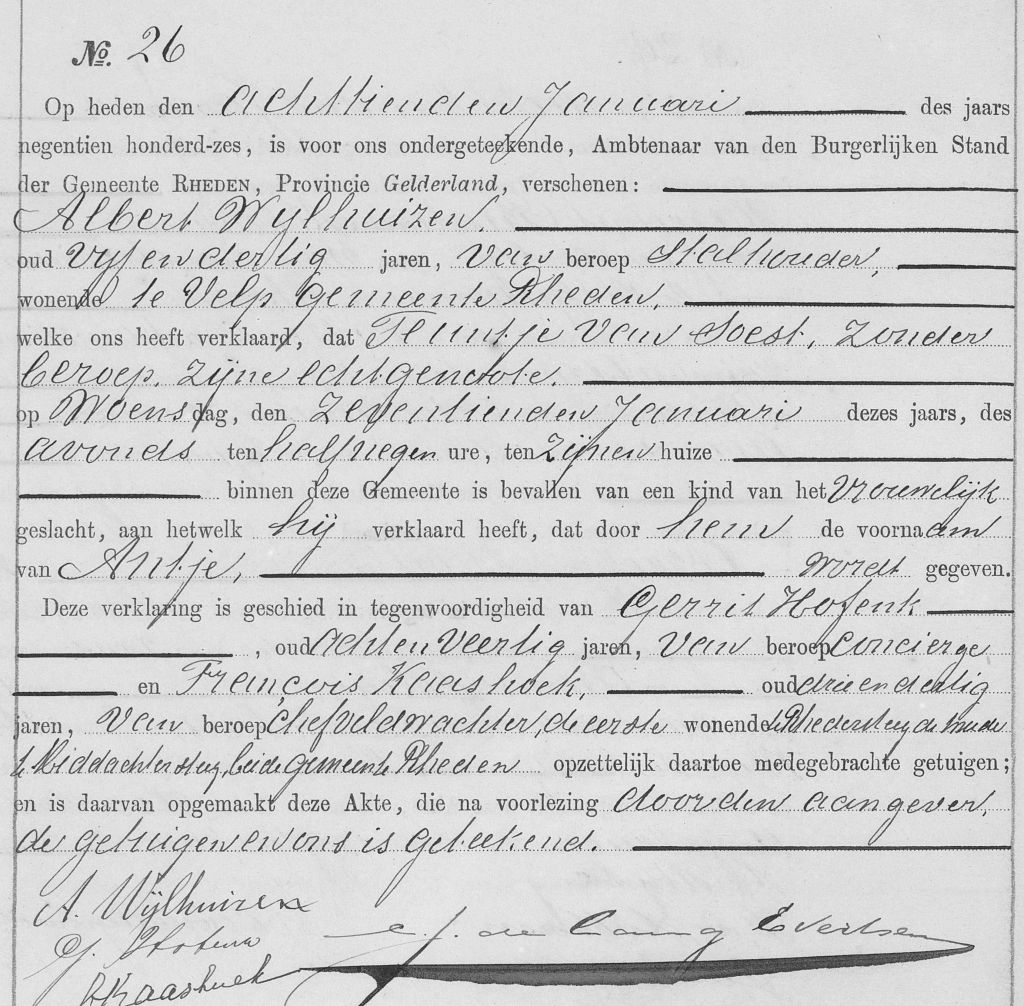 No. 26
Op heden den achttienden Januari des jaars
negentien honderd-zes, is voor ons ondergeteekende, Ambtenaar van den Burgerlijken Stand
der Gemeente RHEDEN, Provincie Gelderland, verschenen:
Albert Wijlhuizen,
oud vijf en dertig jaren, van beroep Stalhouder,
wonende te Velp gemeente Rheden,
welke ons heeft verklaard, dat Teuntje van Soest, zonder
beroep, zijne echtgenoote.
op Woensdag, den zeventienden Januari dezes jaars, des
avonds ten half negen ure, ten zijnen huize
binnen deze Gemeente is bevallen van een kind van het vrouwelijk
geslacht, aan hetwelk hij verklaard heeft, dat door hem de voornaam
van Antje, wordt gegeven.
Deze verklaring is geschied in tegenwoordigheid van Gerrit Hofenk
, oud acht en veertig jaren, van beroep concierge
en François Kaashoek, oud drie en dertig
jaren, van beroep chef veldwachter, de eerste wonende te Rhedersteeg de tweede
te Middachtersteeg, beide gemeente Rheden opzettelijk daartoe medegebrachte getuigen;
en is daarvan opgemaakt deze Akte, die na voorlezing door den aangever,
de getuigen en ons is geteekend.
A. Wijlhuizen
J. de Evertsen
G.
Kaashoek